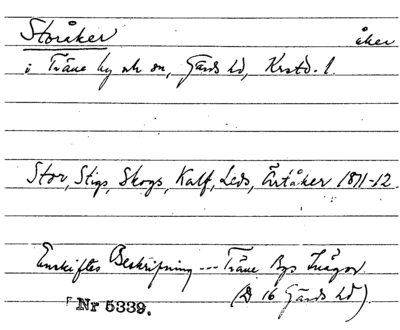 Storåker åker
i Träne by ock sn, Gärds hd, Krstd. l.
Stor, Stigs, Skogs, Kalf, Leds, Ärtåker 1811-12
Enskiftes Beskrifning --- Träne Bys Inägor
(D 16 Gärds hd)
Nr 5339.